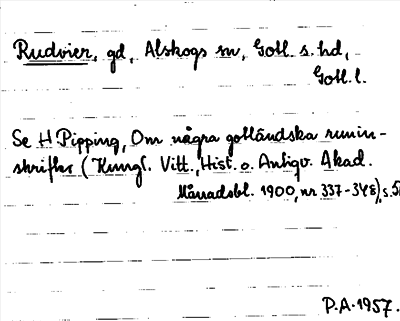 Rudvier, gd, Alskogs sn, Gotl. s. hd,
Gotl. l.
Se H Pipping, Om några gotländska runin-
skrifter (Kungl. Vitt., Hist. o. Antiqv. Akad.
Månadsbl. 1900, nr 337-348), s.
P.A. 1957.